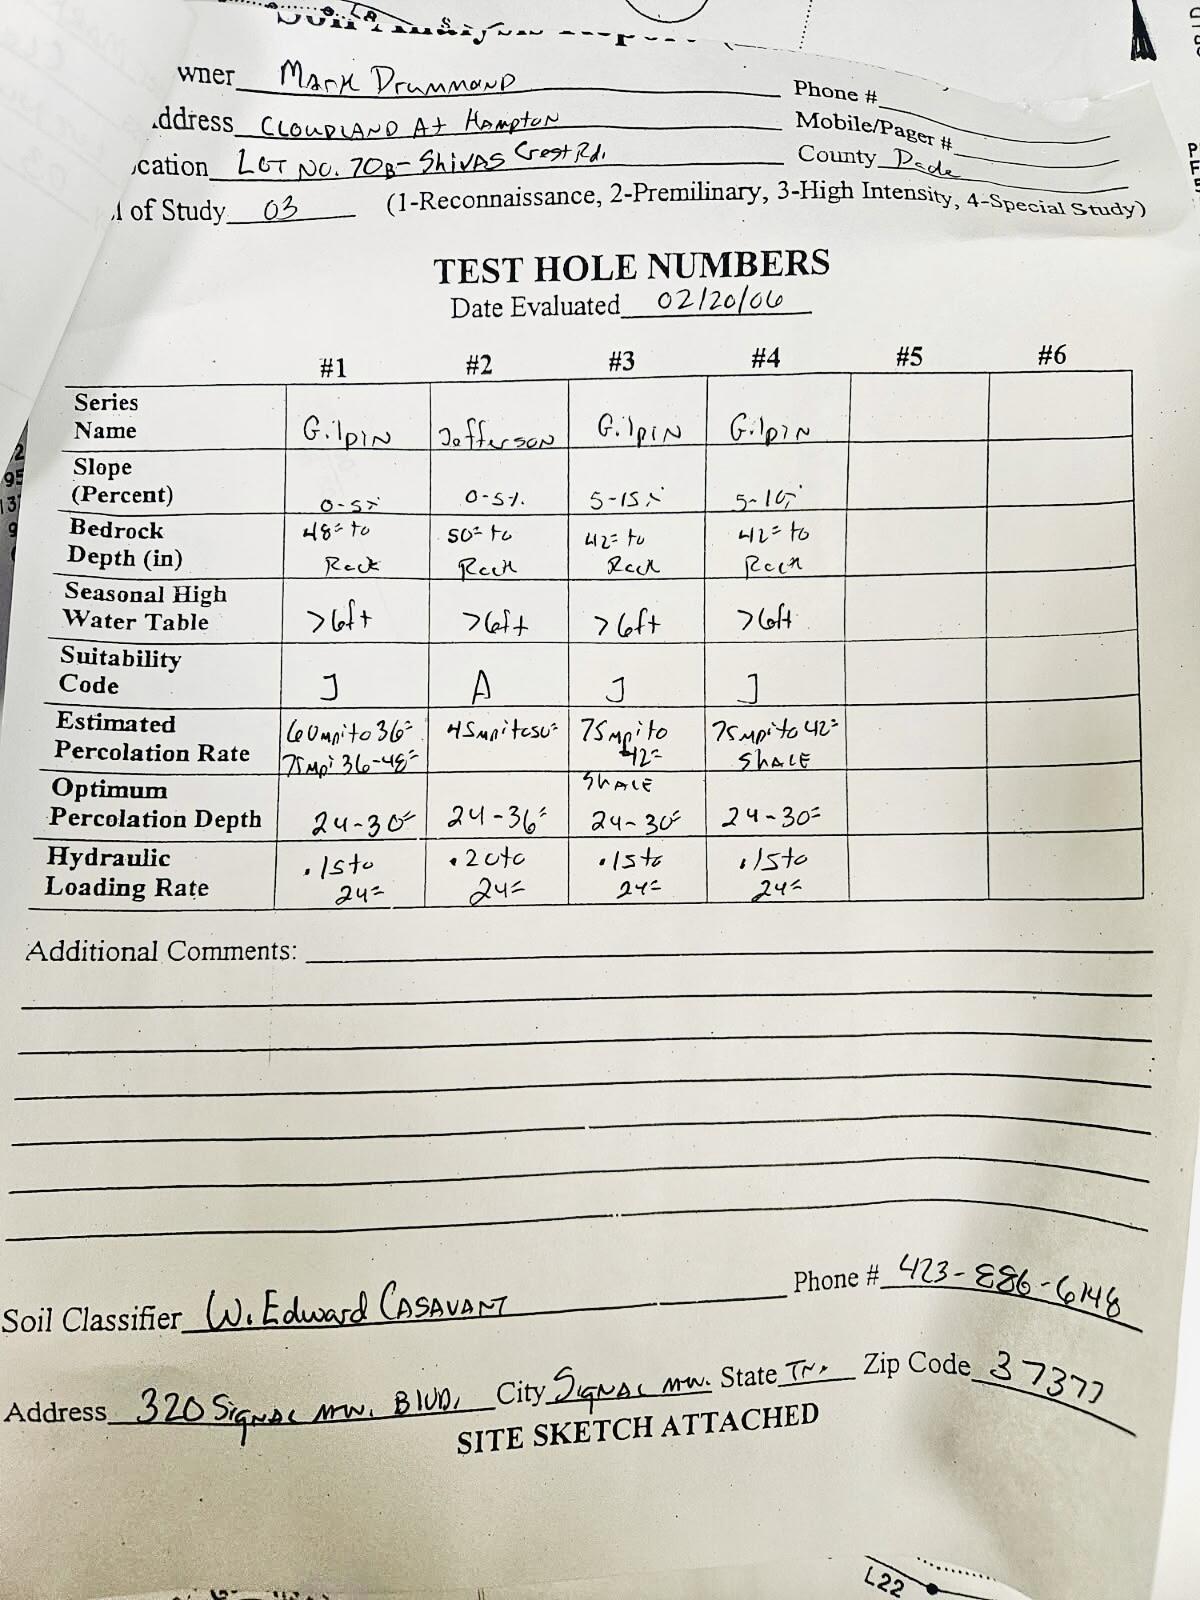 Soil Analysis Report
wner Mark Drummond
Phone #
ddress Cloudland At Hampton
Mobile/Pager #
cation Lot No. 70B- Shivas Crest Rd.
County Dade
l of Study 03 (1-Reconnaissance, 2-Premilinary, 3-High Intensity, 4-Special Study)
TEST HOLE NUMBERS
Date Evaluated 02/20/06
#1 #2 #3 #4 #5 #6
Series
Name Gilpin Jefferson Gilpin Gilpin
Slope
(Percent) 0-5% 0-5% 5-15% 5-10%
Bedrock 48" to 50" to 42" to 42" to
Depth (in) Rock Rock Rock Rock
Seasonal High
Water Table >6ft >6ft >6ft >6ft
Suitability
Code J A J J
Estimated 60mpi to 36" 45mpi to 50" 75mpi to 75mpi to 42"
Percolation Rate 75mpi 36-48" 42" Shale
Optimum Shale
Percolation Depth 24-30" 24-36" 24-30" 24-30"
Hydraulic .15 to .20 to .15 to .15 to
Loading Rate 24" 24" 24" 24"
Additional Comments:
Soil Classifier W. Edward Casavant Phone # 423-886-6148
Address 320 Signal Mtn. Blvd. City Signal Mtn. State Tn. Zip Code 37377
SITE SKETCH ATTACHED
L22